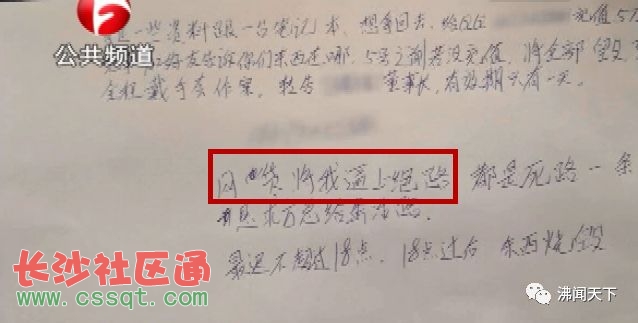 些资料跟一台笔记本,想拿回去,给
充值5万
公共频道
告诉你们东西在哪,5号之前若没充值,将全部毁
全程戴手套作案,报告 董事长,有效期只有一天。
网贷将我逼上绝路 都是死路一条
最迟不超过18点,18点过后 东西烧毁
长沙社区通
www.cssqt.com
沸闻天下